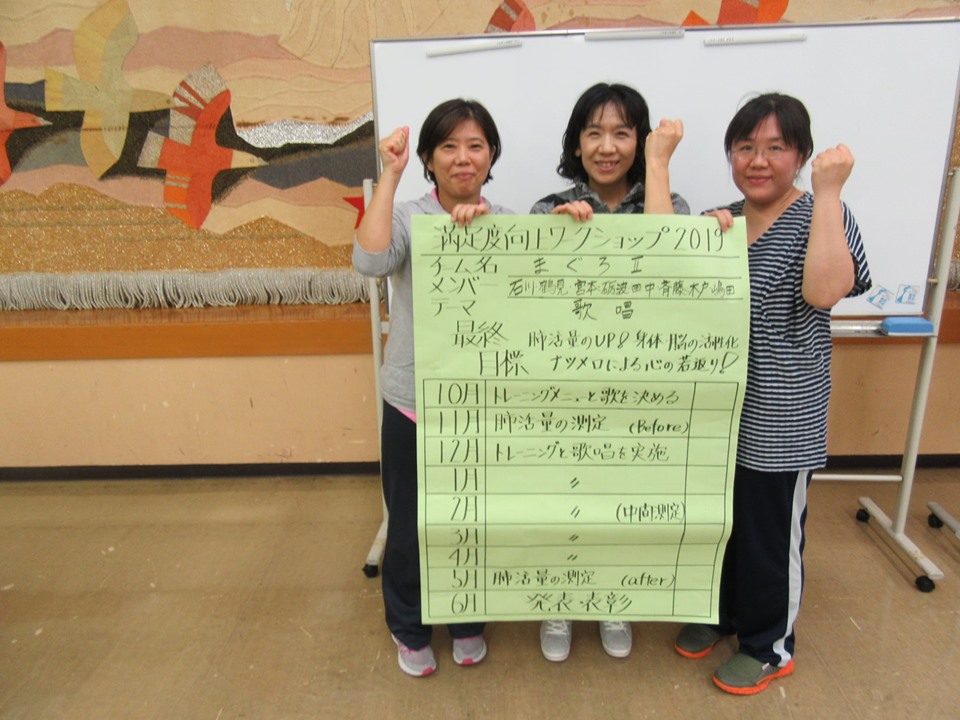 満足度向上ワークショップ2019
チーム名 まぐろⅡ
メンバー 石川・鶴見・宮本・砺波・田中・斉藤・木戸・嶋田
テーマ 歌唱
最終 肺活量のUP! 身体・脳の活性化
目標 ナツメロによる心の若返り!
10月 トレーニングメニューと歌を決める
11月 肺活量の測定 (Before)
12月 トレーニングと歌唱を実施
1月 〃
2月 〃 (中間測定)
3月 〃
4月 〃
5月 肺活量の測定 (after)
6月 発表・表彰